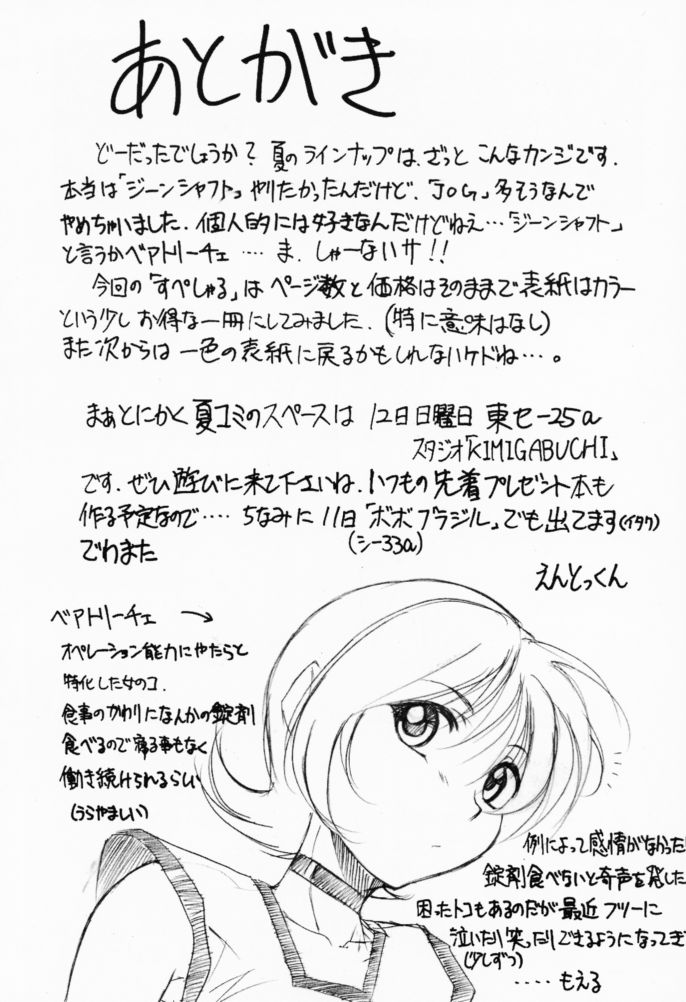 あとがき
どーだったでしょうか? 夏のラインナップは、ざっと こんなカンジです.
本当は「ジーンシャフト」やりたかったんだけど、「JOG」多そうなんで
やめちゃいました. 個人的には好きなんだけどねえ…「ジーンシャフト」
と言うかベアトリーチェ …. ま. しゃーないサ!!
今回の「すぺしゃる」は ページ数と価格はそのままで表紙はカラー
という少し お得な一冊にしてみました. (特に意味はなし)
また次からは 一色の表紙に戻るかもしれないケドね…。
まぁとにかく 夏コミのスペースは 12日日曜日 東セー25a
スタジオ「KIMIGABUCHI」
です. ぜひ遊びに来て下さいね. いつもの先着プレゼント本も
作る予定なので…. ちなみに 11日「ボボブラジル」でも出てます(イタク)
(シー33a)
でわまた
えんとっくん
ベアトリーチェ →
オペレーション能力にやたらと
特化した女のコ.
食事のかわりになんかの錠剤
食べるので寝る事もなく
働き続けられるらしい
(うらやましい)
例によって感情がなかった
錠剤食べないと奇声を発した
困ったトコもあるのだが最近フツーに
泣いたり笑ったりできるようになってき
(少しずつ)
….もえる